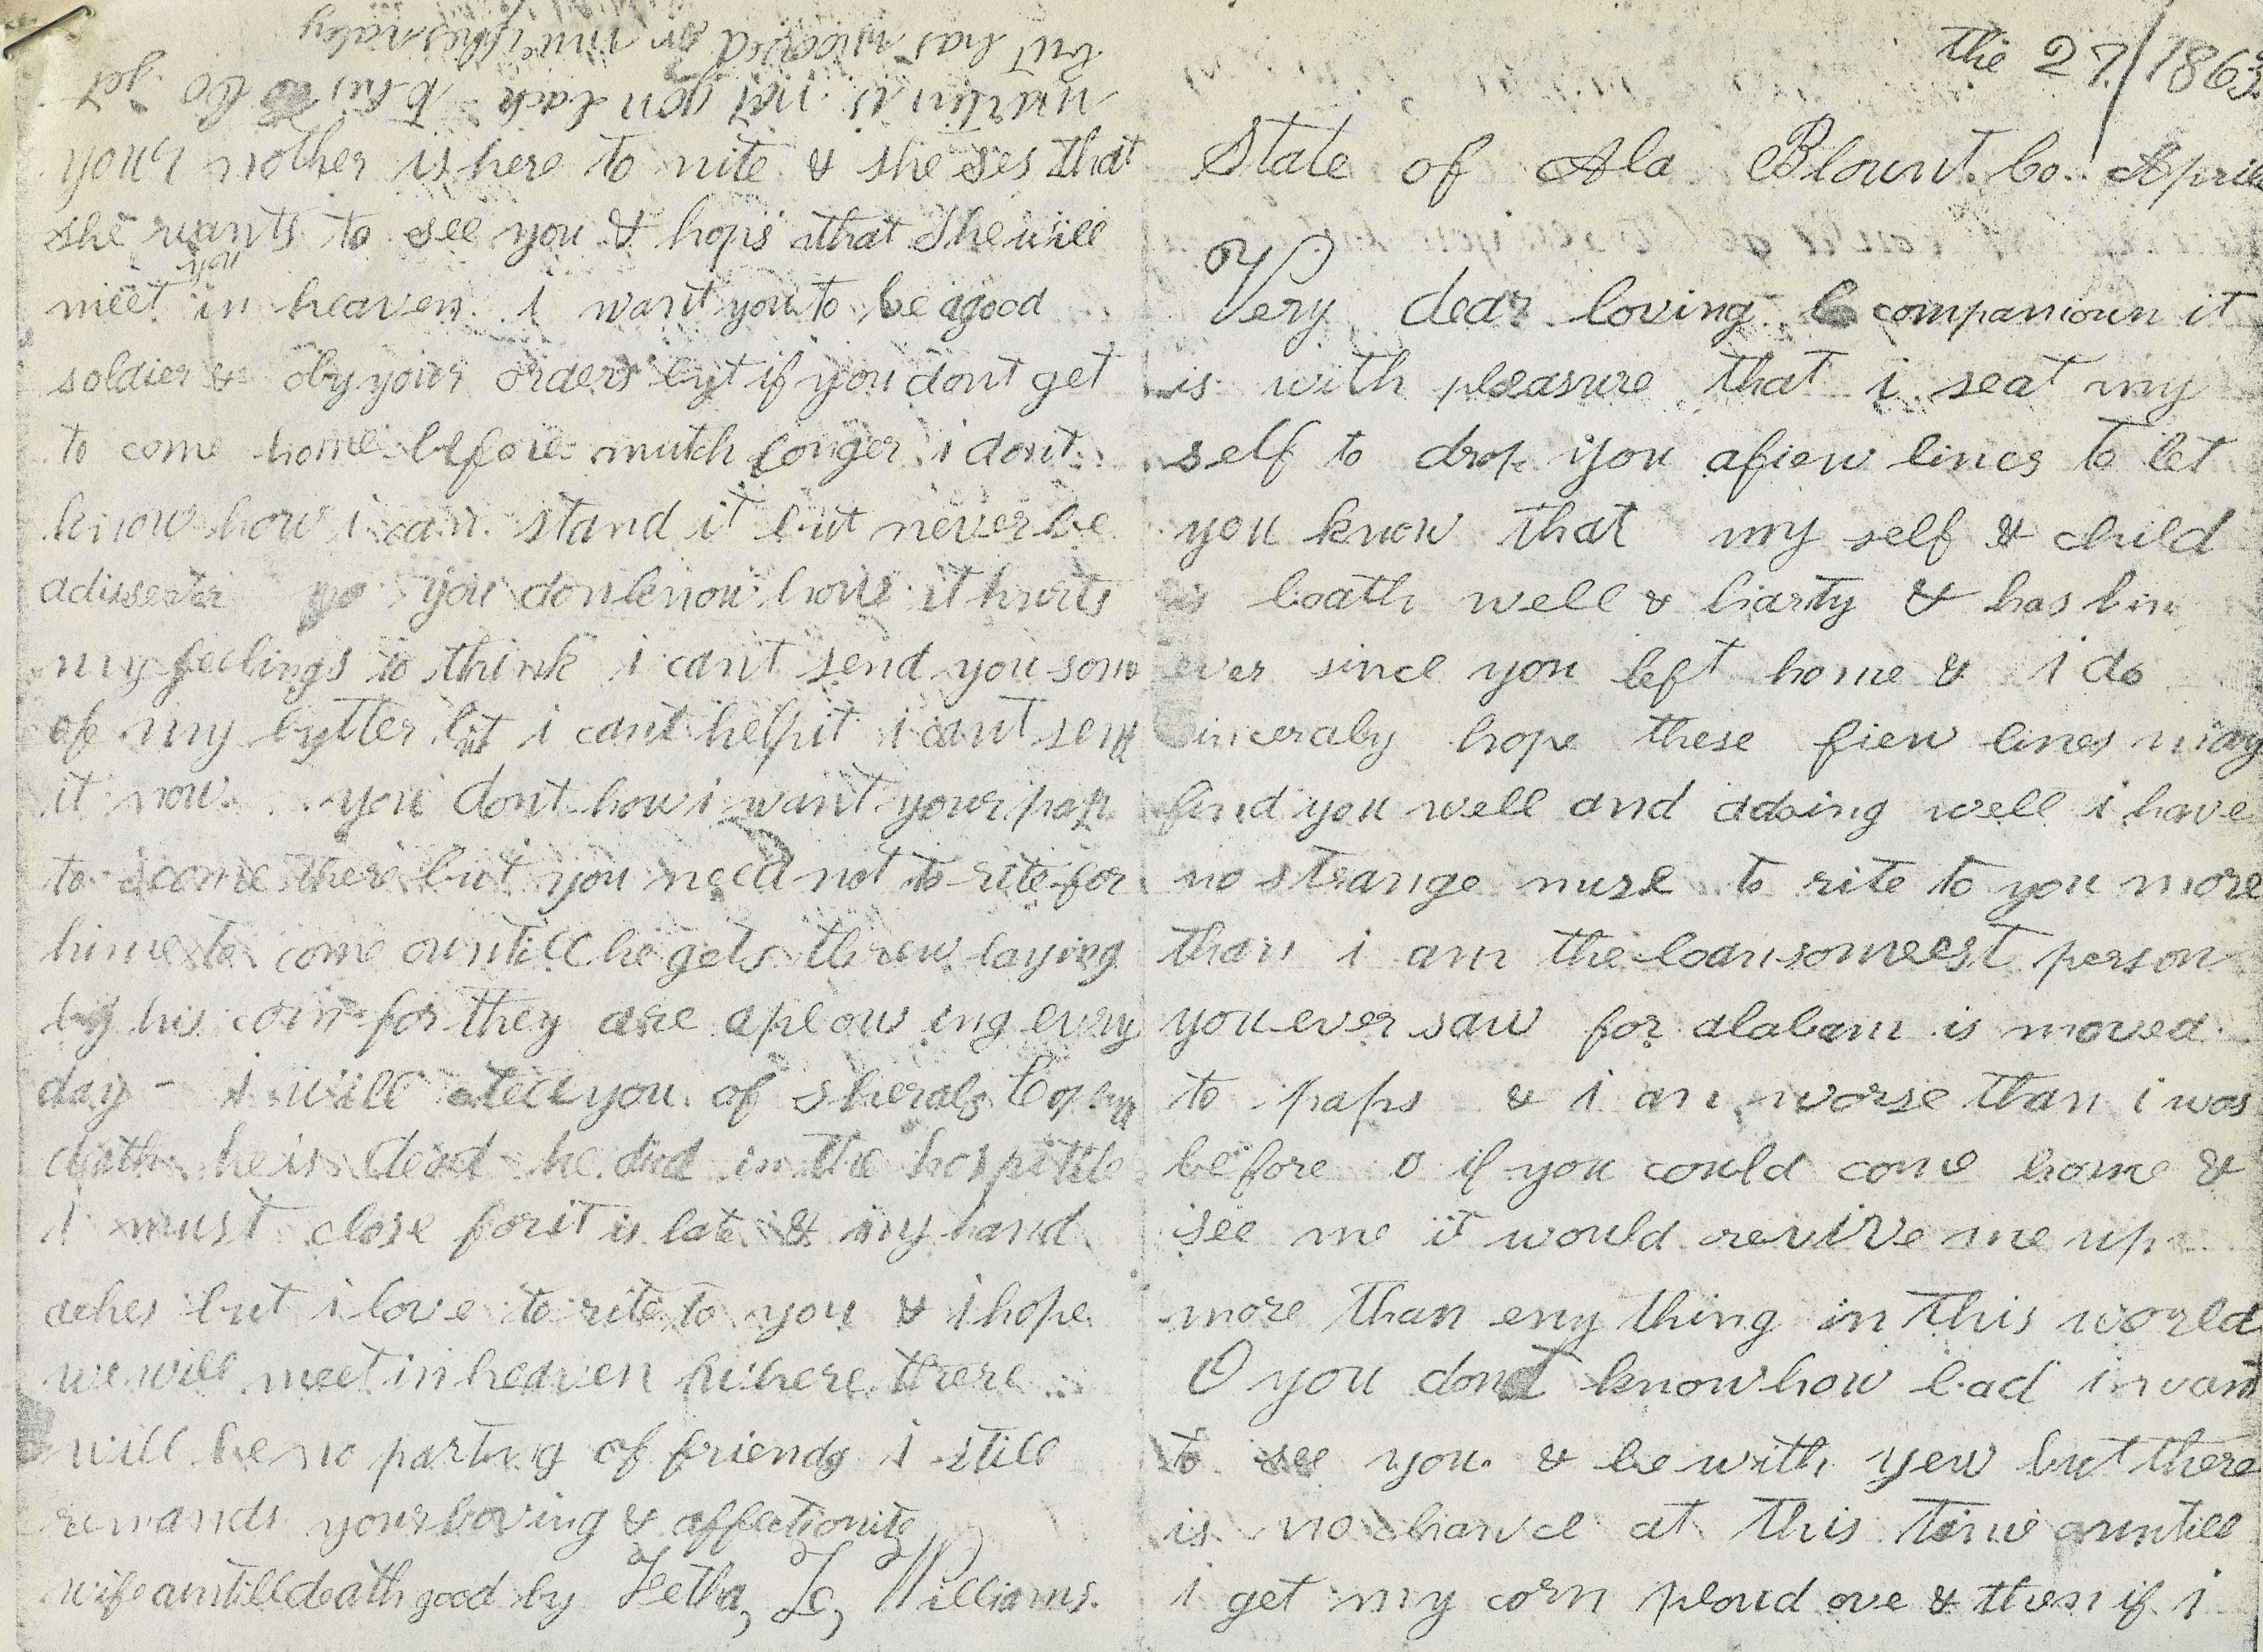 the 27/1863
State of Ala Blount. Co. April
My
Very dear loving companioun it
is with pleasure that i seat my
self to drop you afiew lines to let
you know that my self & child
is boath well & harty & has bin
ever since you left home & i do
sinceraby hope these fiew lines may
find you well and adoing well i have
no strange nuse to rite to you more
than i am the loansomeest person
you ever saw for alabam is moved
to paps & i am worse than i was
before o if you could come home &
see me it would revive me up
more than eny thing in this world
O you dont know how bad i want
to see you & be with yew but there
is no chance at this time auntill
i get my corn ploud ove & then if i
your mother is here to nite & she ses that
she wants to see you & hops that she will
meet you in heaven i want you to be agood
soldier & oby your orders byt if you dont get
to come home before mutch longer i dont
know how i can stand it but never be
adisserter you donknow how it hurts
my feelings to think i cant send you som
of my bytter but i cant help it i cant send
it now you dont how i want your pap
to come there but you need not to rite for
hime to come auntill he gets threw laying
by his corn for they are aplow ing evry
day - i will tell you of sherals
death he is dead he died in the hospitile
i must close for it is late & my hand
aches but i love to rite to you & i hope
we will meet in heaven where there
will be no parting of friends i still
remands your loving & affectionite
wife auntill death good by Letha, La, Williams.
martin is not gon back to his co yet
but has